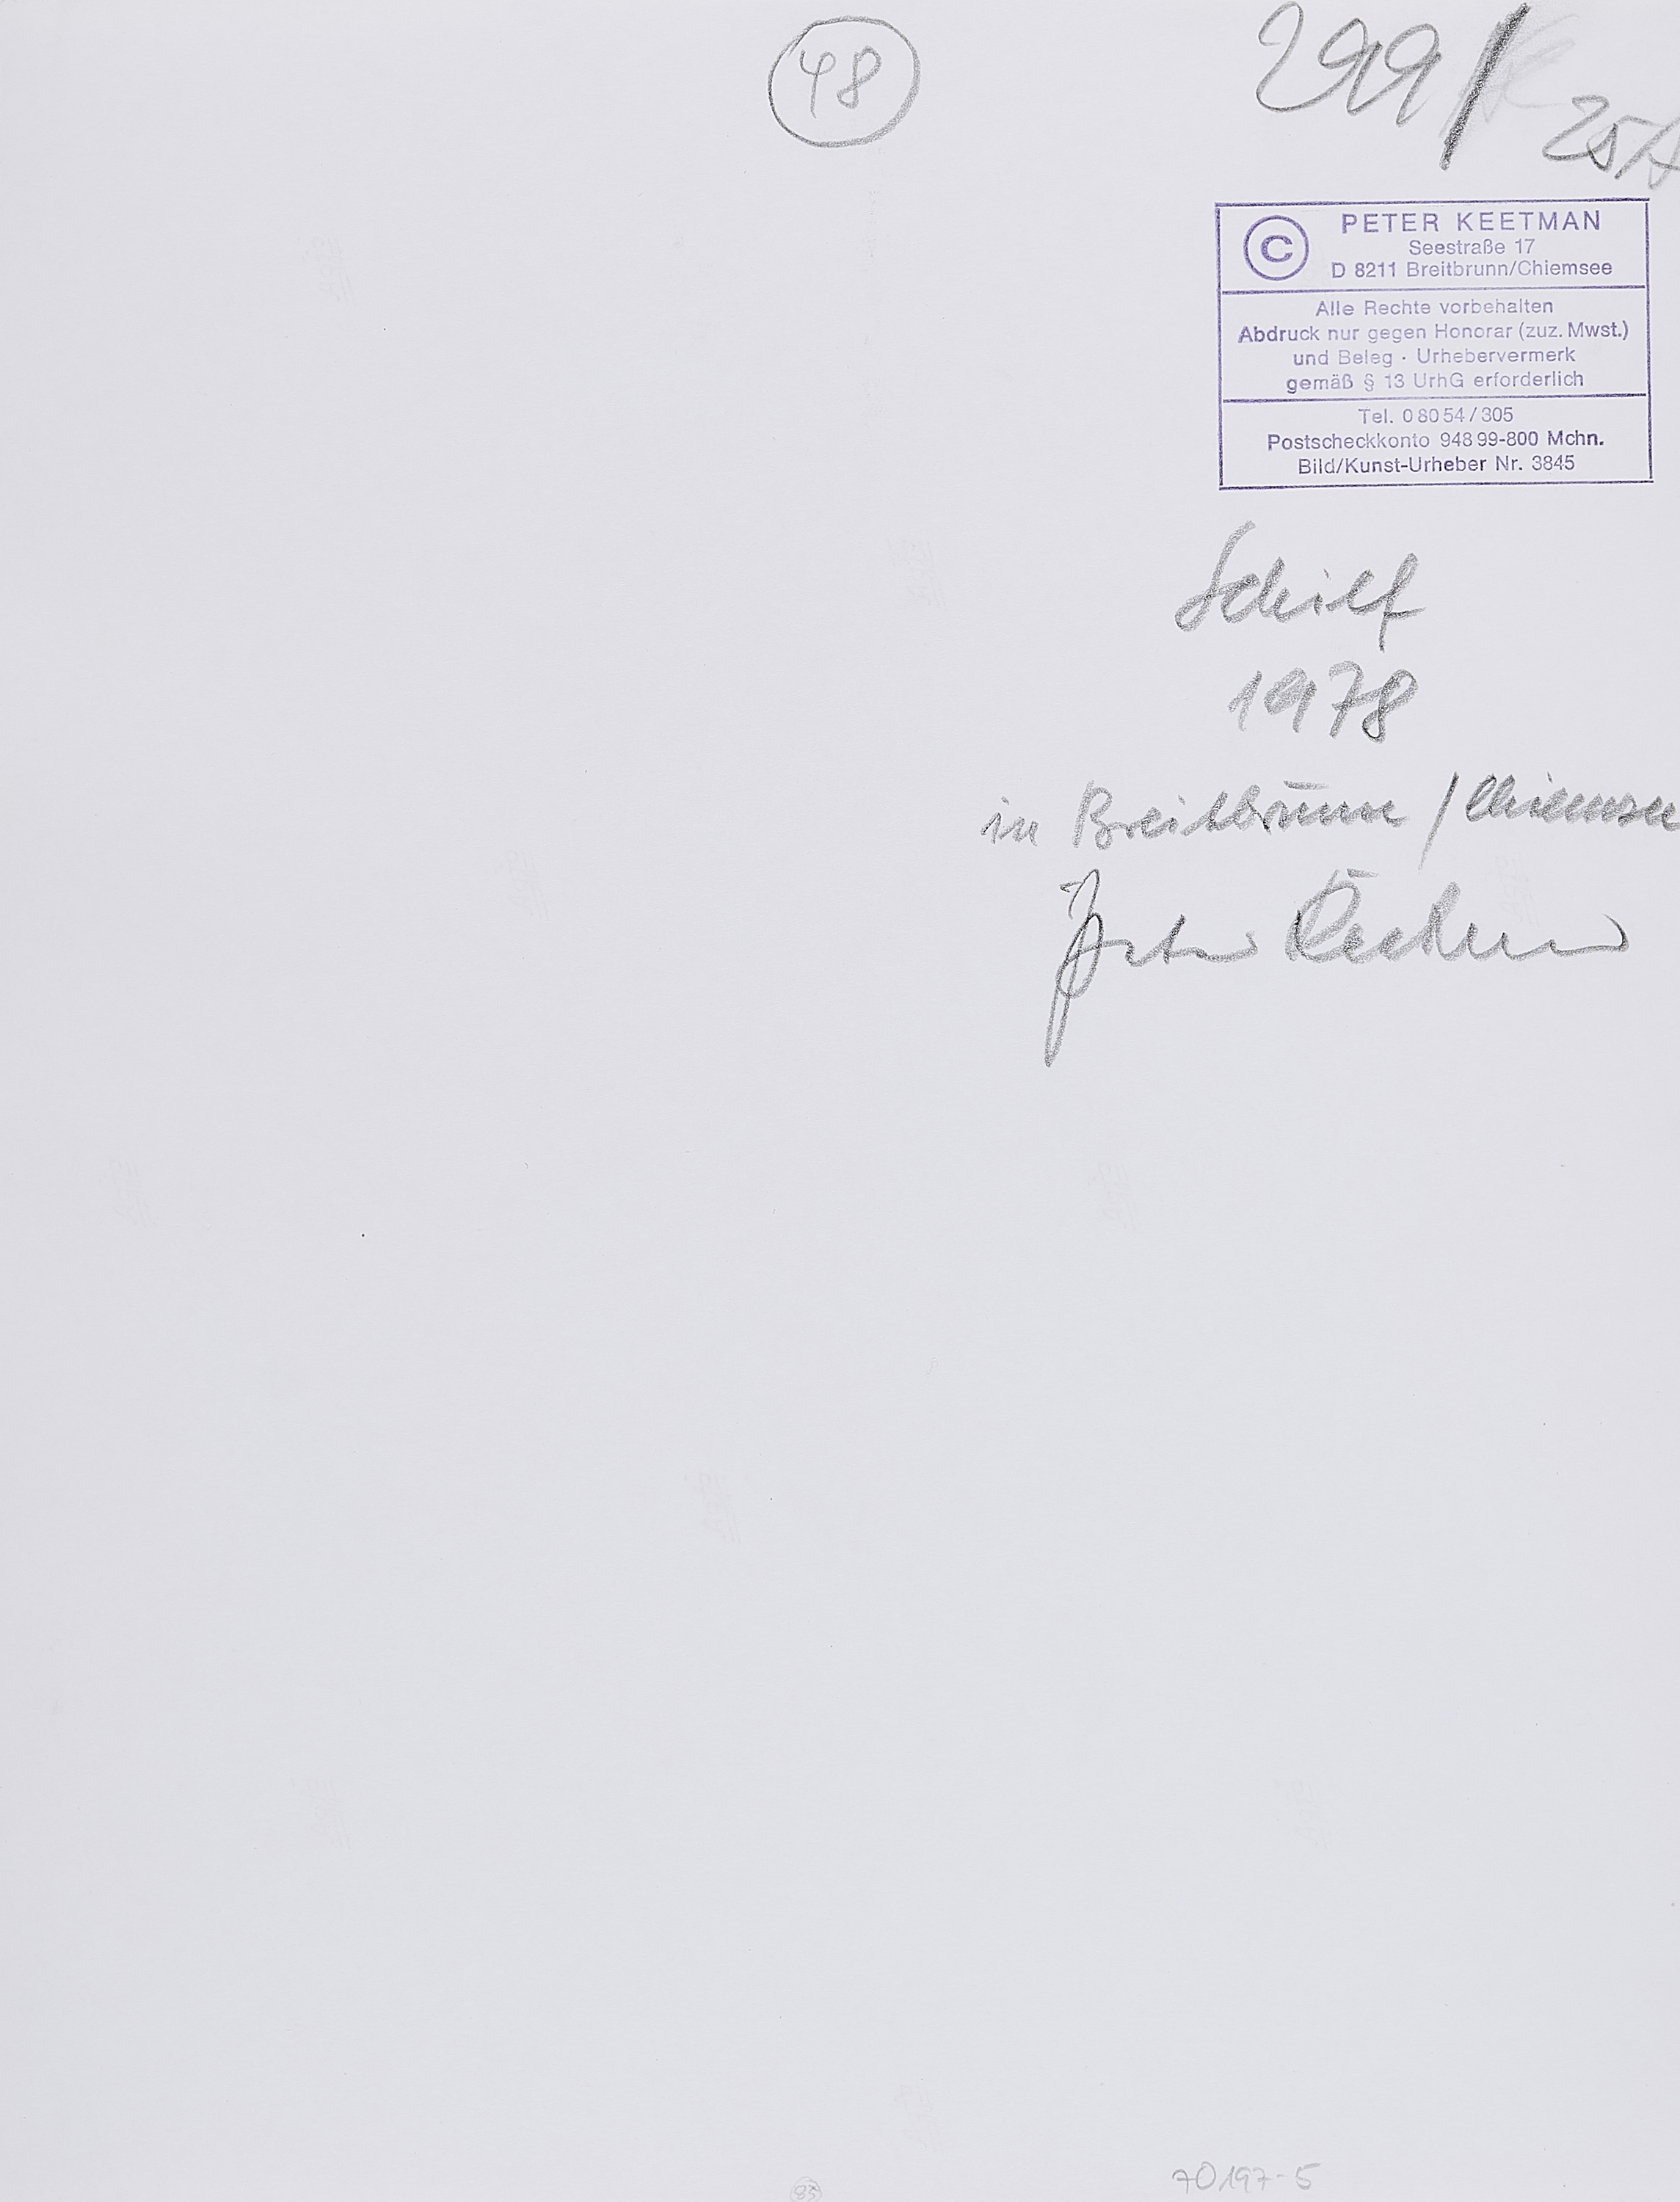 48
299/
25/A
© PETER KEETMAN
Seestraße 17
D 8211 Breitbrunn/Chiemsee
Alle Rechte vorbehalten
Abdruck nur gegen Honorar (zuz. Mwst.)
und Beleg · Urhebervermerk
gemäß § 13 UrhG erforderlich
Tel. 0 80 54 / 305
Postscheckkonto 948 99-800 Mchn.
Bild/Kunst-Urheber Nr. 3845
Schilf
1978
in Breitbrunn / Chiemsee
Peter Keetman
70197-5
83